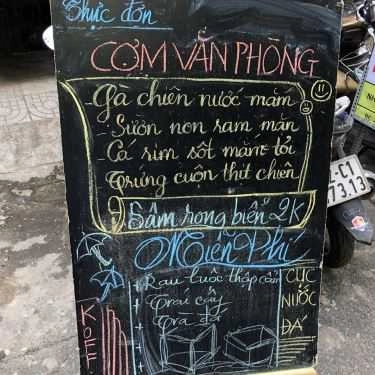 Thực đơn
CƠM VĂN PHÒNG
Gà chiên nước mắm
Sườn non ram mặn
Cá rim sốt mắm tỏi
Trứng cuộn thịt chiên
Sâm rong biển 2K
Miễn Phí
+ Rau luộc thập cẩm
+ Trái cây
+ Trà đá
CỤC
NƯỚC
ĐÁ
KOFF
C1
73.13